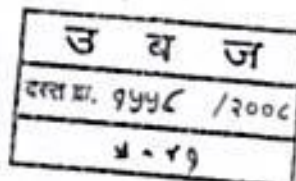 उ व ज
दस्त क्र. १५५८ /२००८
५ - ४१